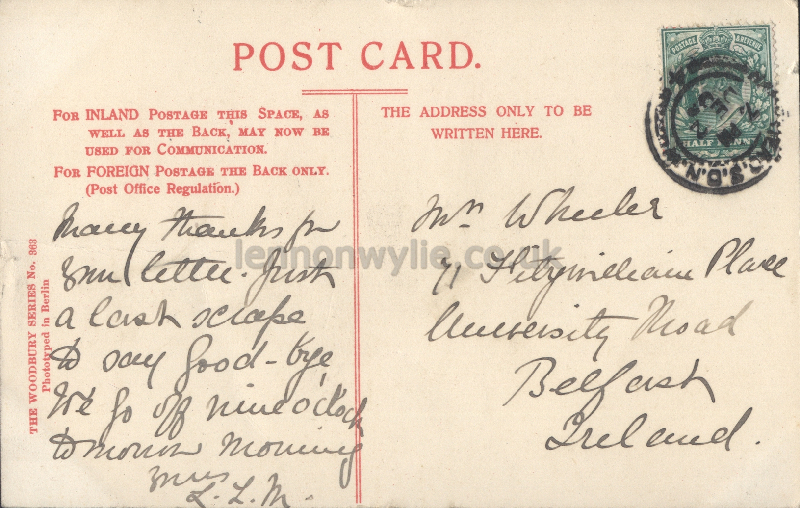 POST CARD.
FOR INLAND POSTAGE THIS SPACE, AS
WELL AS THE BACK, MAY NOW BE
USED FOR COMMUNICATION.
FOR FOREIGN POSTAGE THE BACK ONLY.
(Post Office Regulation.)
THE ADDRESS ONLY TO BE
WRITTEN HERE.
POSTAGE & REVENUE
HALF PENNY
S.O.
THE WOODBURY SERIES No. 363
Phototyped in Berlin
Many thanks for
your letter. Just
a last scrape
to say good-bye
We go off nine o'clock
tomorrow morning
yrs
L. L. M.
Mrs Wheeler
71 Fitzwilliam Place
University Road
Belfast
Ireland.
lennonwylie.co.uk